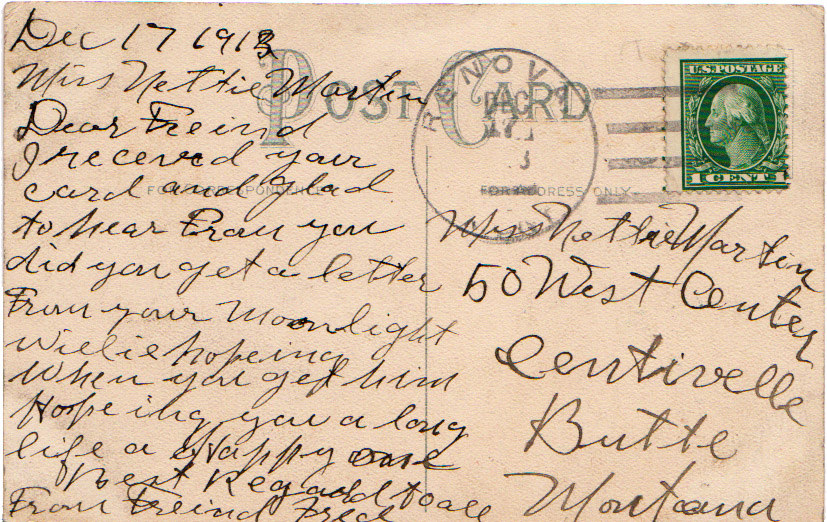 Dec 17 1913
Miss Nettie Martin
Dear Freind
I receved your
card and glad
to hear From you
did you get a letter
From your Moonlight
Willie hopeing
When you get him
Hopeing you a long
life a Happy one
Best Regard to all
From Freind Fred
POST CARD
FOR CORRESPONDENCE
FOR ADDRESS ONLY
RENOVO
DEC
17
3
U.S. POSTAGE
1 CENT 1
Miss Nettie Martin
50 West Center
Centivelle
Butte
Montana